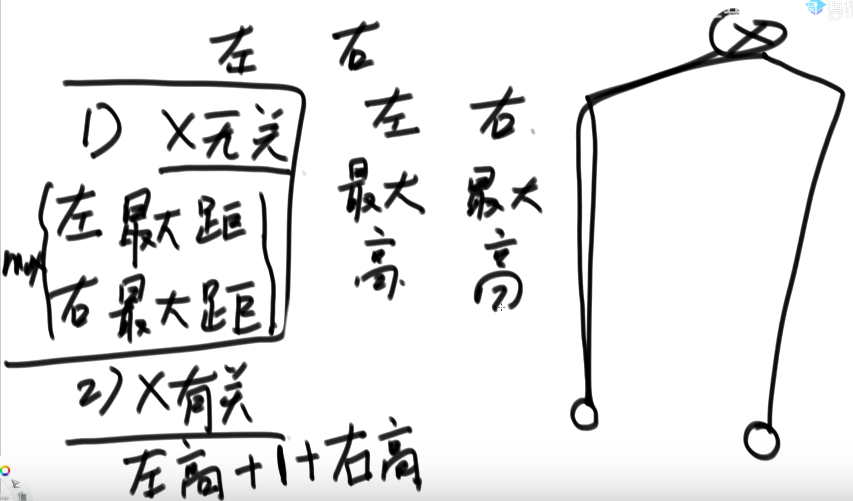 左 右
1) X无关
max
左最大距
右最大距
左最大高
右最大高
2) X有关
左高+1+右高
X